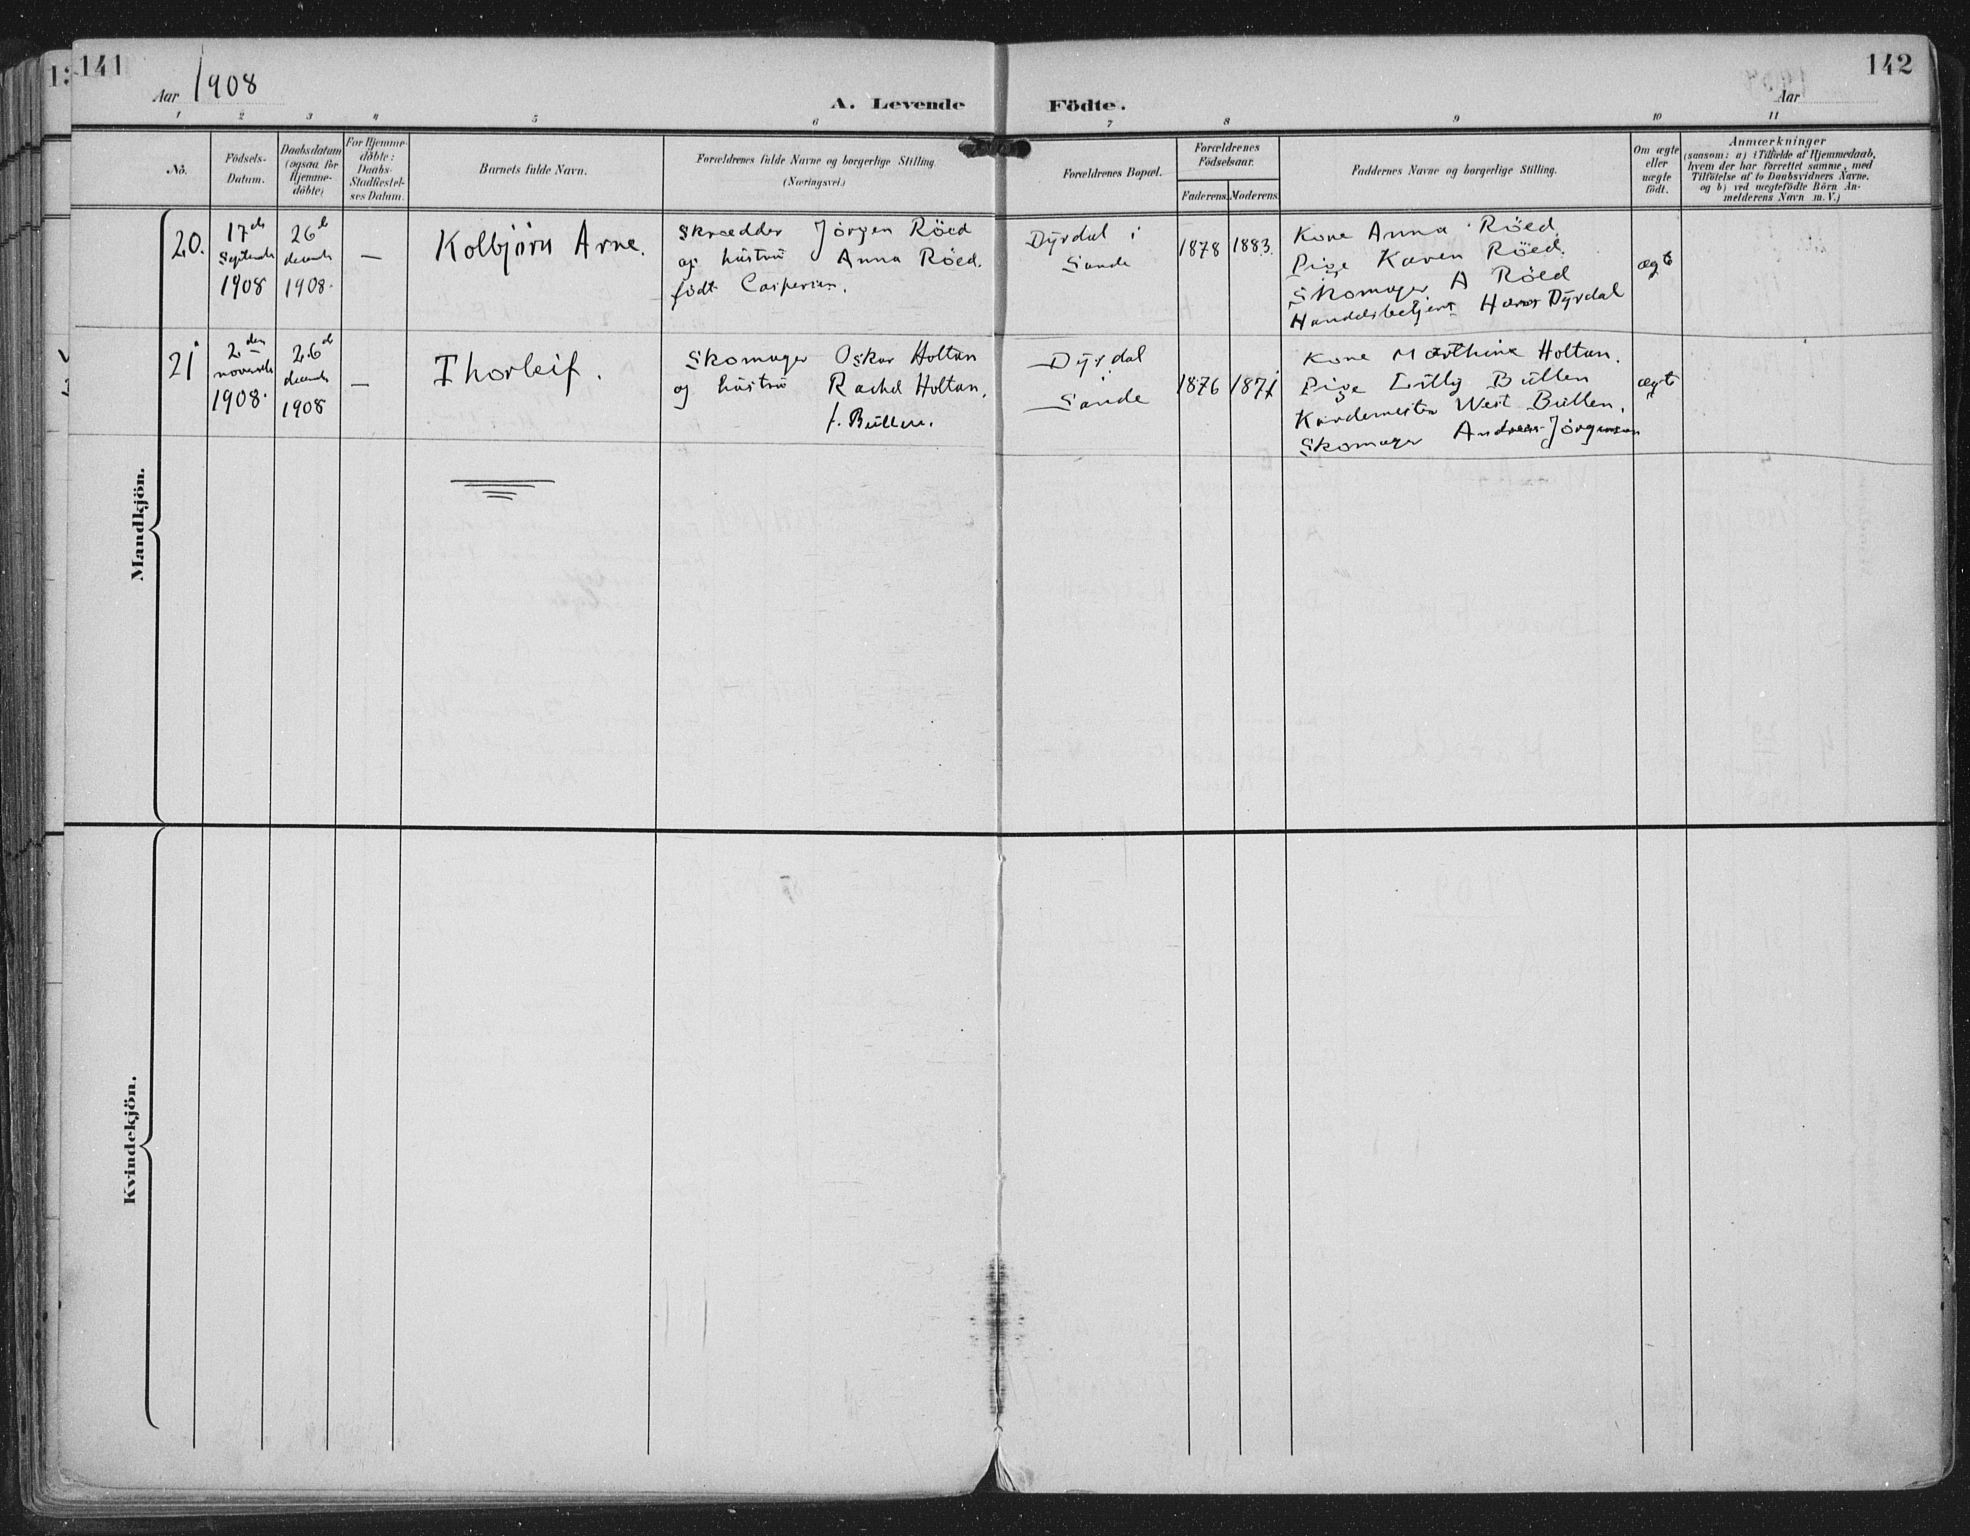 141
142
Aar 1908
A. Levende Födte.
Aar
1 2 3 4 5 6 7 8 9 10 11
No.
Födsels-
Datum.
Daabsdatum
(ogsaa for
Hjemme-
döbte)
For Hjemme-
döbte:
Daabs-
Stadfæstel-
ses Datum.
Barnets fulde Navn.
Forældrenes fulde Navne og borgerlige Stilling
(Næringsvei.)
Forældrenes Bopæl.
Forældrenes
Födselsaar.
Faderens. Moderens.
Faddernes Navne og borgerlige Stilling.
Om ægte
eller
uægte
født.
Anmærkninger
(saasom: a) i Tilfælde af Hjemmedaab,
hvem der har forrettet samme, med
Tilföielse af to Daabsvidners Navne,
og b) ved uægtefödte Börn An-
melderens Navn m. V.)
Mandkjön.
20.
17de
Septembr
1908
26d
decemb
1908.
—
Kolbjörn Arne.
Skrædder Jörgen Röed
og hustru Anna Röed.
födt Caspersen.
Dyrdal i
Sande
1878
1883.
Kone Anna Röed.
Pige Karen Röed.
Skomager A Röed
Handelsbetjent Hans Dyrdal
ægte
21
2den
novembr
1908.
26d
decemb
1908
—
Thorleif.
Skomager Oskar Holtan
og hustru Rachel Holtan.
f. Bullen.
Dyrdal
Sande
1876
1871
Kone Marthine Holtan.
Pige Lilly Bullen
Kardemester West Bullen.
Skomager Andreas Jörgensen
ægte
Kvindekjön.